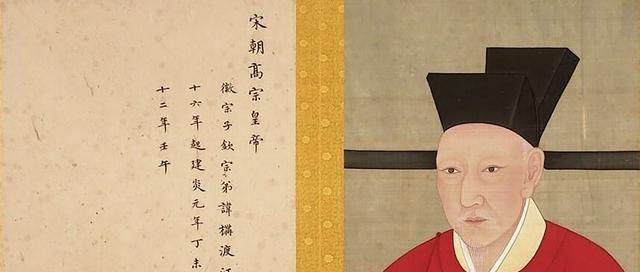 宋朝髙宗皇帝
徽宗子欽宗弟諱構渡江
十六年起建炎元年丁未
十二年壬午